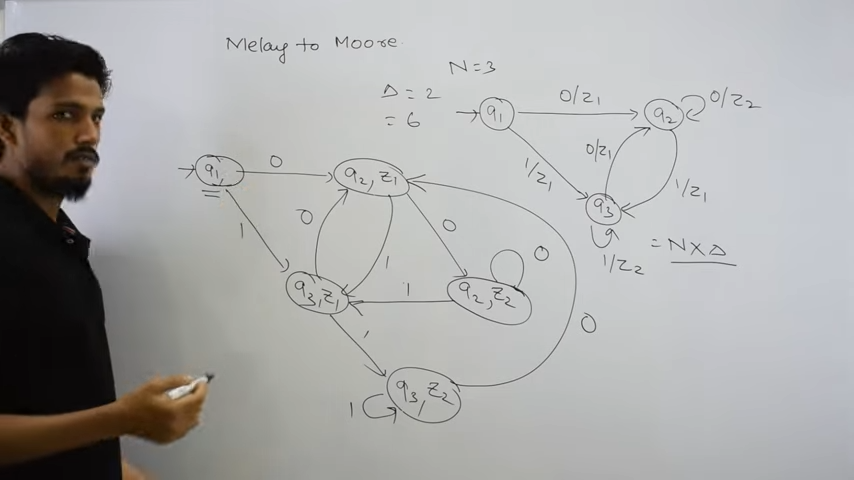 Melay to Moore.
N=3
Δ = 2
= 6
q1
0/z1
q2
0/z2
1/z1
0/z1
1/z1
q3
1/z2
= N×Δ
q1,
0
q2, z1
1
0
1
0
0
q3, z1
1
q2, z2
1
0
q3, z2
1